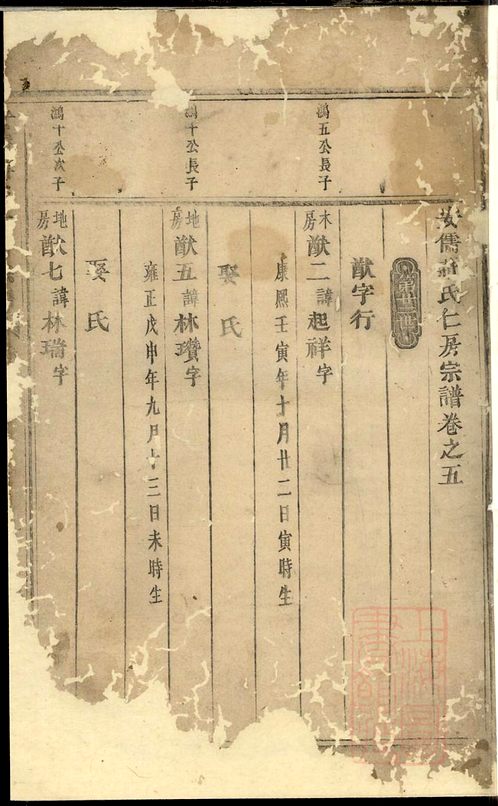 安儒莊氏仁房宗譜卷之五
猷字行
鴻五公長子
木房猷二諱起祥字
康熙壬寅年十月廿二日寅時生
娶氏
鴻十公長子
地房猷五諱林瓚字
雍正戊申年九月十三日未時生
娶氏
鴻十公次子
地房猷七諱林瑞字